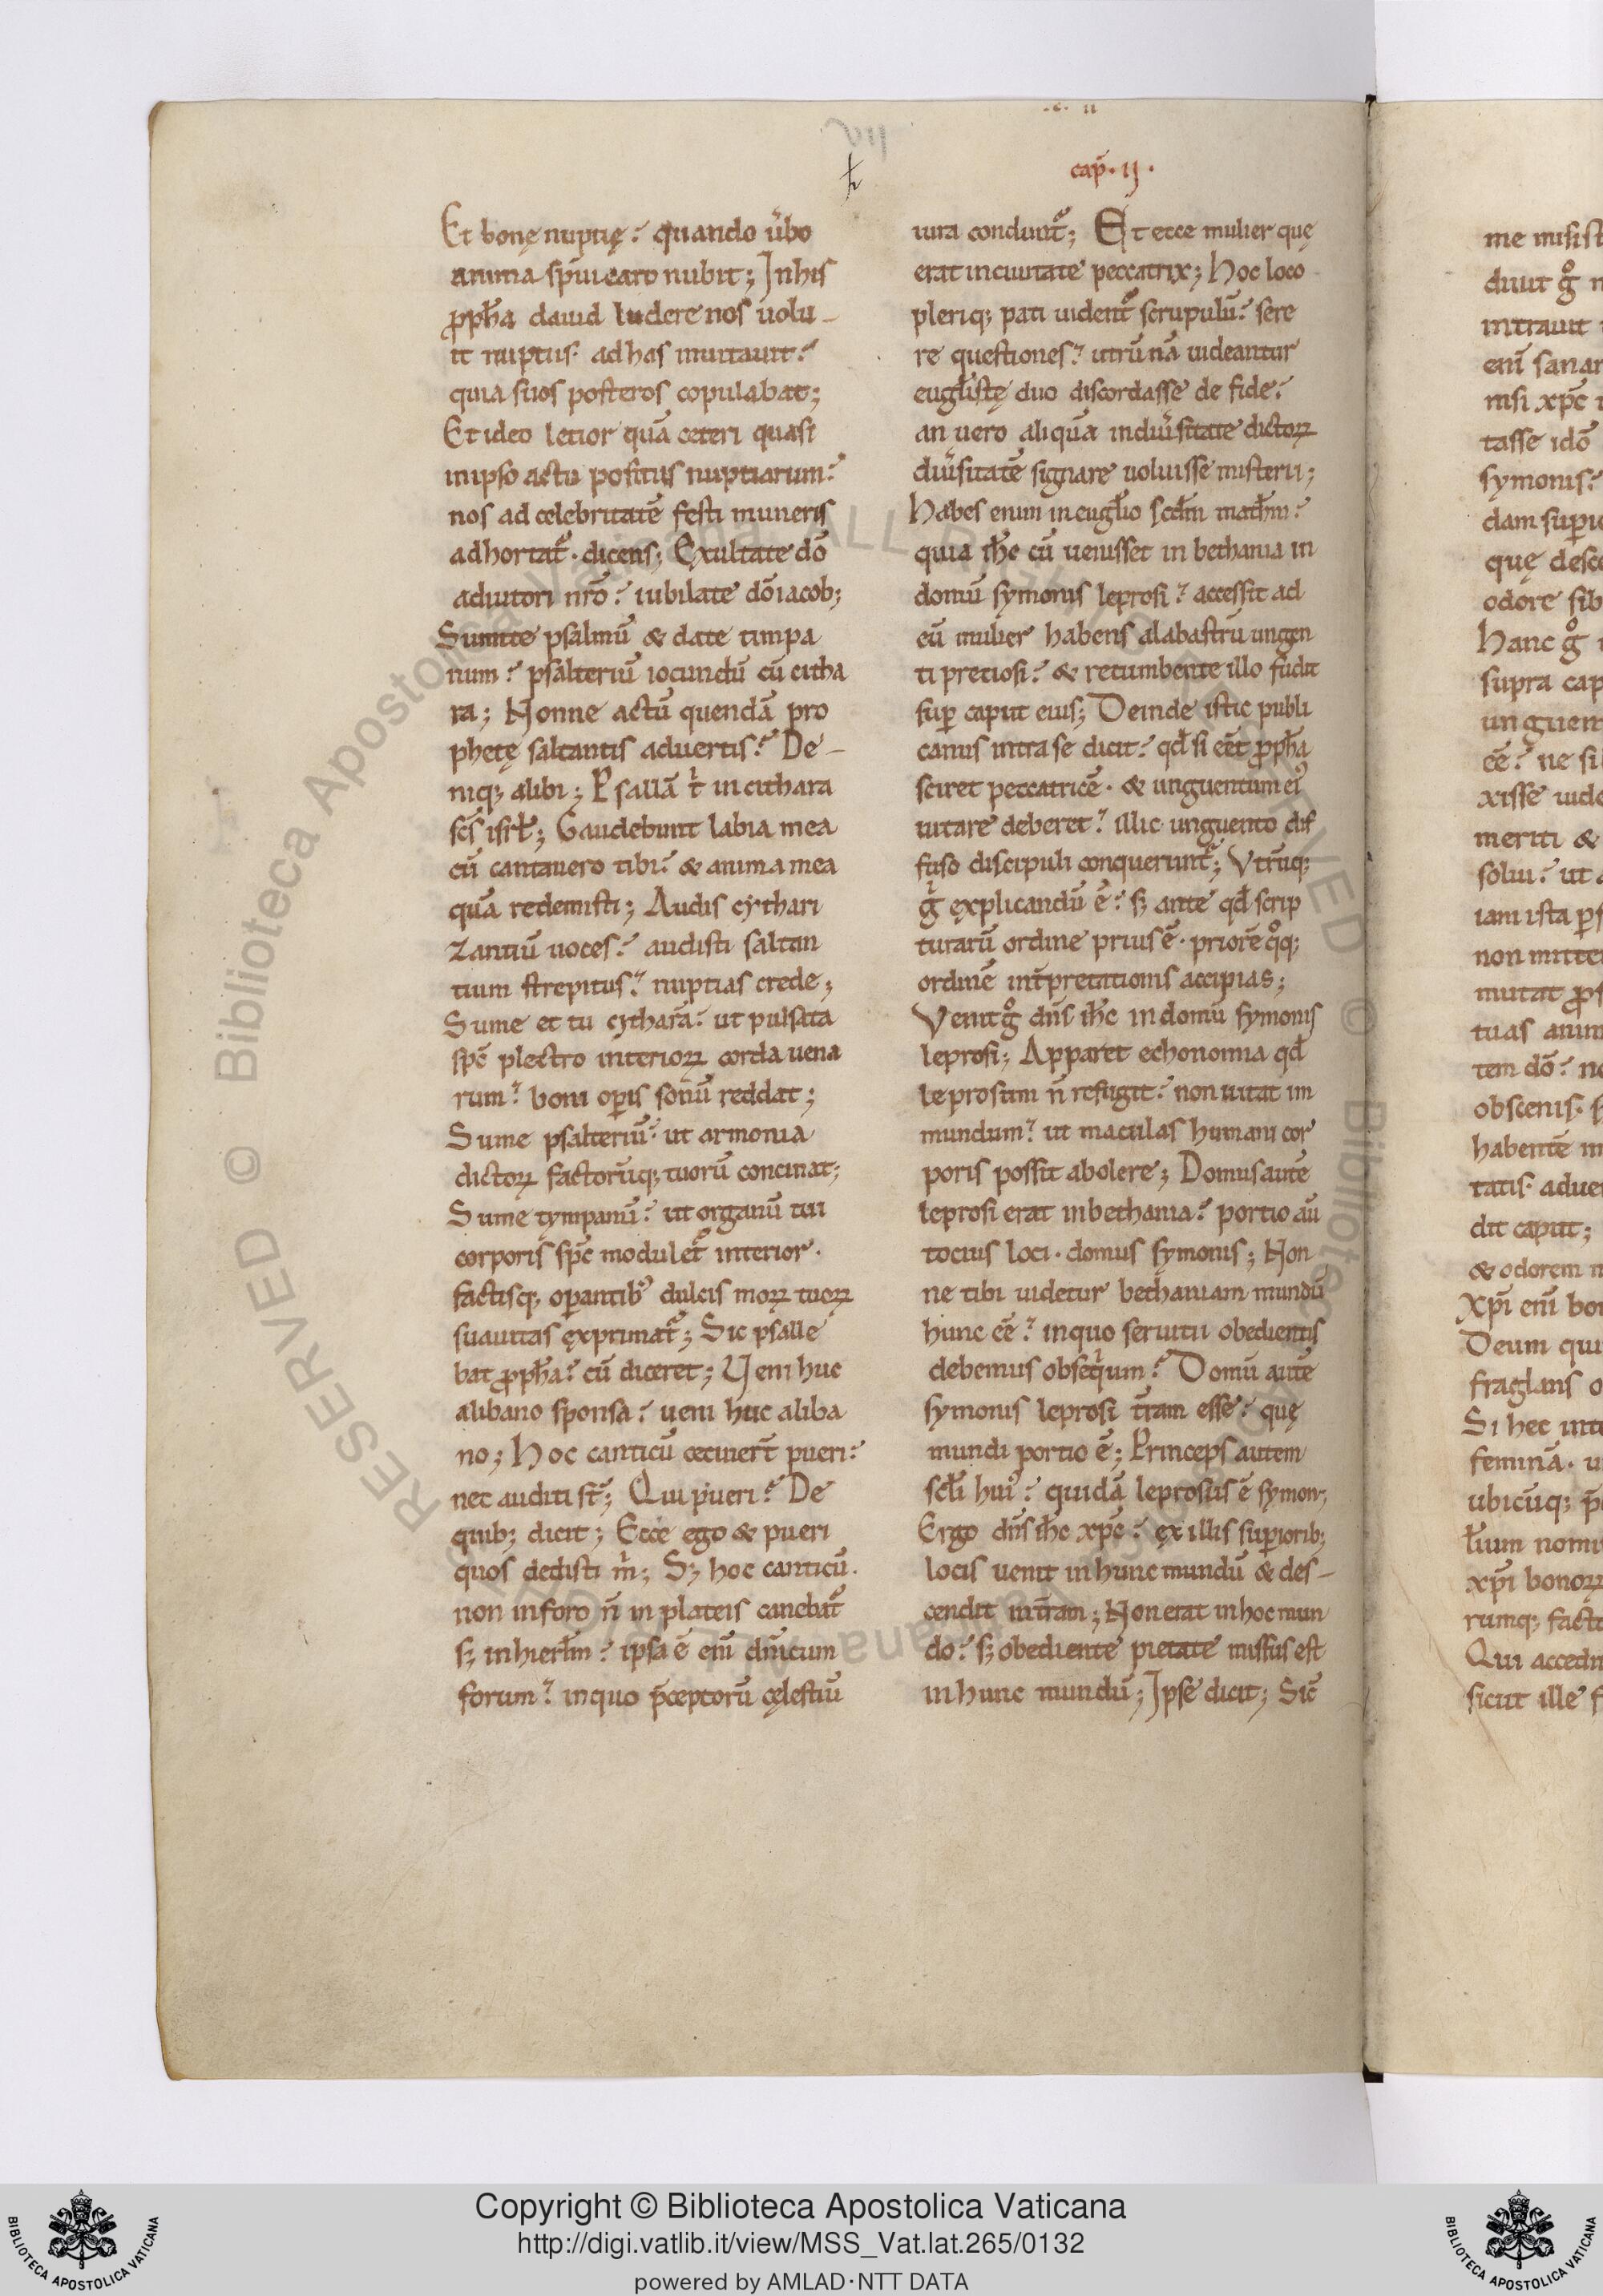 .c. ii
cap̄. ii.
Et bonę nuptię? quando ůbo
anima spůi caro nubit; In his
ꝓpħa dauid ludere nos uolu-
it nuptiis. ad has inuitauit?
quia suos posteros copulabat;
Et ideo letior quā ceteri quasi
in ipso actu positus nuptiarum?
nos ad celebritatē festi muneris
adhortat᷑. dicens; Exultate dō
adiutori nr̄o? iubilate dō iacob;
Sumite psalmū & date timpa
num? psalteriū iocundū cū citha
ra; Nonne actū quendā pro
phetę saltantis aduertis? De-
niq; alibi; Psallā t̾ in cithara
sc̄s isrł; Gaudebunt labia mea
cū cantauero tibi? & anima mea
quā redemisti; Audis cythari
zantiū uoces? audisti saltan
tium strepitus? nuptias crede;
Sume et tu cytharā? ut pulsata
sp̄c plectro interioꝝ corda uena
rum? boni oꝑis sonū reddat;
Sume psalteriū? ut armonia
dictoꝝ factorūq; tuorū concinat;
Sume tympanū? ut organū tui
corporis sp̄c modulet᷑ interior.
factisq; oꝑantibꝰ dulcis moꝝ tuoꝝ
suauitas ęxprimat᷑; Sic psalle
bat ꝓpħa? cū diceret; Veni huc
a libano sponsa? ueni huc a liba
no; Hoc canticū cecinert̄ pueri?
nec auditi st̄; Qui pueri? De
quib; dicit; Ecce ego & pueri
quos dedisti m̾; S; hoc canticū.
non in foro n̄ in plateis canebat᷑
s; in hierłm? ipsa ē enī dn̄icum
forum? in quo p̄ceptorū cęlestiū
iura condunt᷑; Et ecce mulier quę
erat in ciuitate peccatrix; Hoc loco
pleriq; pati uident᷑ scrupulū? sere
re questiones? utrū nā uideantur
eugłistę duo discordasse de fide?
an uero aliquā in diůsitate dictoꝝ
diůsitatē signare uoluisse misterii;
Habes enim in eugłio scdm̄ mathm̄?
quia ihc̄ cū uenisset in bethania in
domū symonis leprosi? accessit ad
eū mulier habens alabastrū ungen
ti pretiosi? & recumbente illo fudit
suꝑ caput eius; Deinde istic publi
canus intra se dicit? qđ si eēt ꝓpħa
sciret peccatricē. & unguentum eiꝰ
uitare deberet? illic unguento dif
fuso discipuli conquerunt᷑; Vtrūq;
g̾ ęxplicandū ē? s; ante qđ scrip
turarū ordine prius ē. priorē qͦq;
ordinē int̾pretationis accipias;
Venit gͦ dn̄s ihc̄ in domū symonis
leprosi; Apparet echonomia qđ
leprosum n̄ refugit? non uitat im
mundum? ut maculas humani cor
poris possit abolere; Domus autē
leprosi erat in bethania? portio aū
tocius loci. domus symonis; Non
ne tibi uidetur bethaniam mundū
hunc eē? in quo seruitii obedientis
debemus obseq̾um? Domū autē
symonis leprosi t̄ram esse? quę
mundi portio ē; Princeps autem
scłi huiꝰ? quidā leprosus ē symon;
Ergo dn̄s ihc̄ xpc̄? ęx illis suꝑiorib;
locis uenit in hunc mundū & des-
cendit in t̄ram; Non erat in hoc mun
do? s; obediente pietate missus est
in hunc mundū; Ipse dicit; Sic̄
me misist
diuit gͦ n
intrauit
enī sanar
nisi xpc̄
tasse idō
symonis?
dam suꝑi
quę desce
odore sib
Hanc gͦ
supra cap
unguen
eē? ne si
xisse uide
meriti &
solui? ut a
iam ista ꝑs
non mitte
mutat ꝓs
tuas anim
tem dō? no
obscenis. s
habentē in
tatis. adue
dit caput;
& odorem n
Xpi̅ enī bo
Deum qui
fraglans o
Si hec int
feminā. u
ubicūq; p̄
łium nomi
xpi̅ bonoꝝ
rumq; facto
Qui acced
sicut ille f
Copyright © Biblioteca Apostolica Vaticana
http://digi.vatlib.it/view/MSS_Vat.lat.265/0132
powered by AMLAD·NTT DATA
BIBLIOTECA APOSTOLICA VATICANA
BIBLIOTECA APOSTOLICA VATICANA